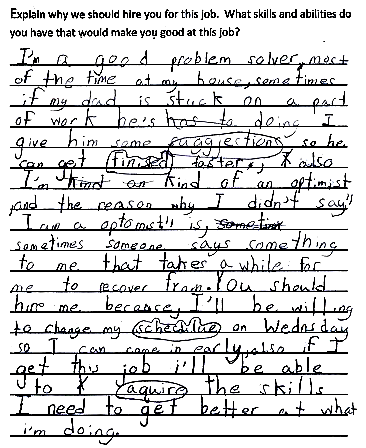 Explain why we should hire you for this job. What skills and abilities do
you have that would make you good at this job?
I'm a good problem solver, most
of the time at my house, sometimes
if my dad is stuck on a part
of work he's has to doing I
give him some suggjestions so he
can get finised faster, I also
I'm kind an kind of an optimist
and the reason why I didn't say"
I am a optomst" is, sometim
sometimes someone says something
to me that takes a while for
me to recover from. You should
hire me because, I'll be willing
to change my schedulae on Wednsday
so I can come in early, also if I
get this job i'll be able
to aquire the skills
I need to get better at what
i'm doing.